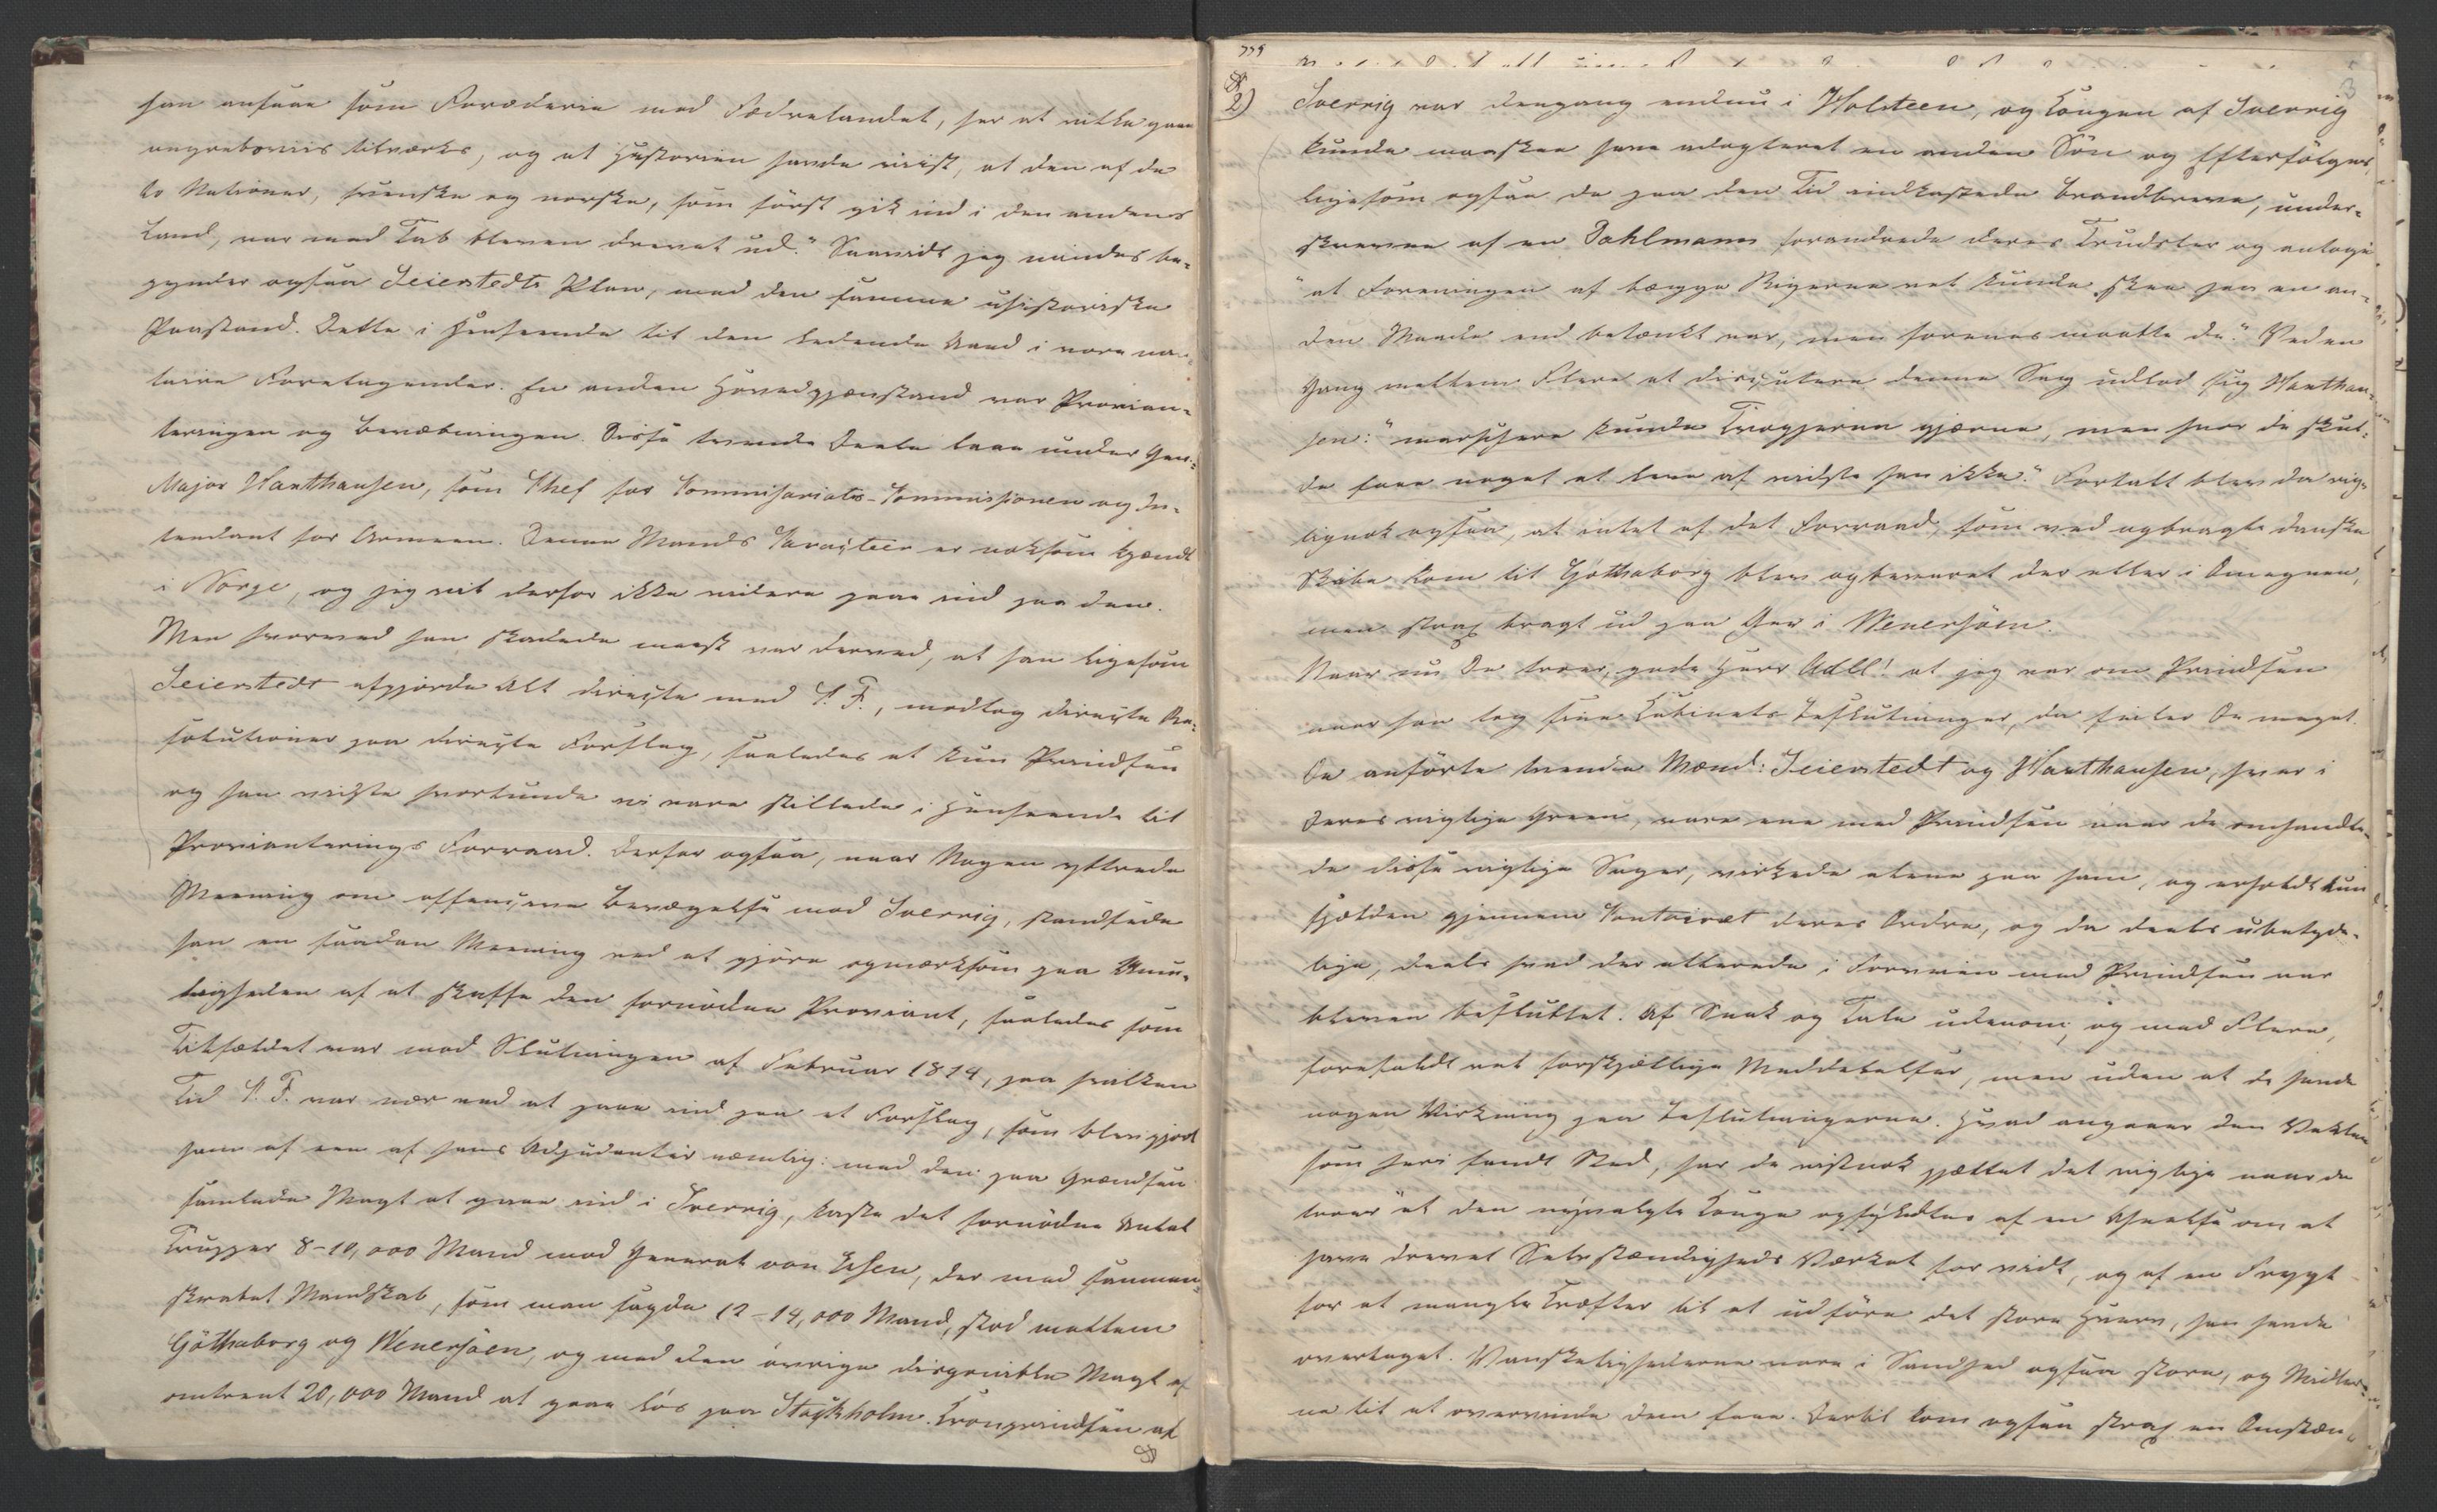 han ansaae som Forræderie mod Fædrelandet, her at ville gaae
angrebsviis tilværks, og at Historien havde viist, at den af de
to Nationer, svenske og norske, som først gik ind i den andens
Land, var med Tab bleven drevet ud." Saavidt jeg mindes be-
gynder ogsaa Seierstedts Plan, med den samme uhistoriske
Paastand. Dette i Henseende til den ledende Aand i vore mi-
litaire Foretagender. En anden Hovedgjenstand var Provian-
teringen og Bevæbningen. Disse tvende Deele laae under Gen:
Major Haxthausen, som Chef for Commissariats-Commissionen og In-
tendant for Armeen. Denne Mands Caracteer er noksom kjendt
i Norge, og jeg vil derfor ikke videre gaae ind paa den.
Men hvorved han skadede meest var derved, at han ligesom
Seierstedt afgjorde Alt directe med C. F., modtog directe Re-
solutioner paa directe Forslag, saaledes at kun Prindsen
og han vidste hvorlunde vi vare stillede i Henseende til
Provianterings Forraad. Derfor ogsaa, naar Nogen yttrede
Meening om offensive Bevægelse mod Sverrig, standsede
han en saadan Meening ved at gjøre opmærksom paa Umu-
ligheden af at skaffe den fornødne Proviant, saaledes som
Tilfældet var mod Slutningen af Februar 1814, paa hvilken
Tid C. F. var nær ved at gaae ind paa et Forslag, som blev gjort
ham af een af hans Adjudanter nemlig: med den paa Grændsen
samlede Magt at gaae ind i Sverrig, kaste det fornødne Antal
Trupper 8-10,000 Mand mod General von Essen, der med sammen-
skrabet Mandskab, som man sagde 12-14,000 Mand, stod mellem
Göthaborg og Wenersøen, og med den øvrige disponible Magt af
omtrent 20,000 Mand at gaae løs paa Stockholm. Kronprindsen af
2) Sverrig var dengang endnu i Holsteen, og Kongen af Sverrig
kunde maaskee have adopteret en anden Søn og Efterfølger,
ligesom ogsaa de paa den Tid indkastede Brandbreve, under-
skrevne af en Dahlmann forandrede deres Trudsler og antoge
"at Foreningen af begge Rigerne vel kunde skee paa en an-
den Maade end betænkt var, men forenes maatte de." Ved en
Gang mellem Flere at discutere denne Sag udlod sig Haxthau-
sen: "marschere kunde Tropperne gjerne, men hvor de skul-
de faae noget at leve af vidste han ikke." Fortalt blev da rig-
tignok ogsaa, at intet af det Forraad, som ved opbragte danske
Skibe kom til Göthaborg blev opbevaret der eller i Omegnen,
men strax bragt ud paa Øer i Wenersøen.
Naar nu De troer, gode Herr Aall! at jeg var om Prindsen
naar han tog sine Cabinets Beslutninger, da feiler De meget.
De anførte tvende Mænd: Seierstedt og Haxthausen, hver i
deres vigtige Green, vare ene med Prindsen naar de omhandle-
de disse vigtige Sager, virkede alene paa ham, og erholdt kun
sjelden gjennem Contoiret deres Ordre, og da deels ubetyde-
lige, deels hvad der allerede i Forveien med Prindsen var
bleven besluttet. Af Snak og Tale udenom, og med Flere,
foreholdt vel forskjellige Meddelelser, men uden at de havde
nogen Virkning paa Beslutningerne. Hvad angaaer den Vaklen
som heri fandt Sted, har De vistnok gjættet det rigtige naar De
troer "at den nyvalgte Konge opfyldtes af en Ahnelse om at
have drevet Selvstændigheds Værket for vidt, og af en Frygt
for at mangle Kræfter til at udføre det store Hverv, han havde
overtaget. Vanskelighederne vare i Sandhed ogsaa store, og Midler-
ne til at overvinde dem faae. Dertil kom ogsaa strax en Omstæn-